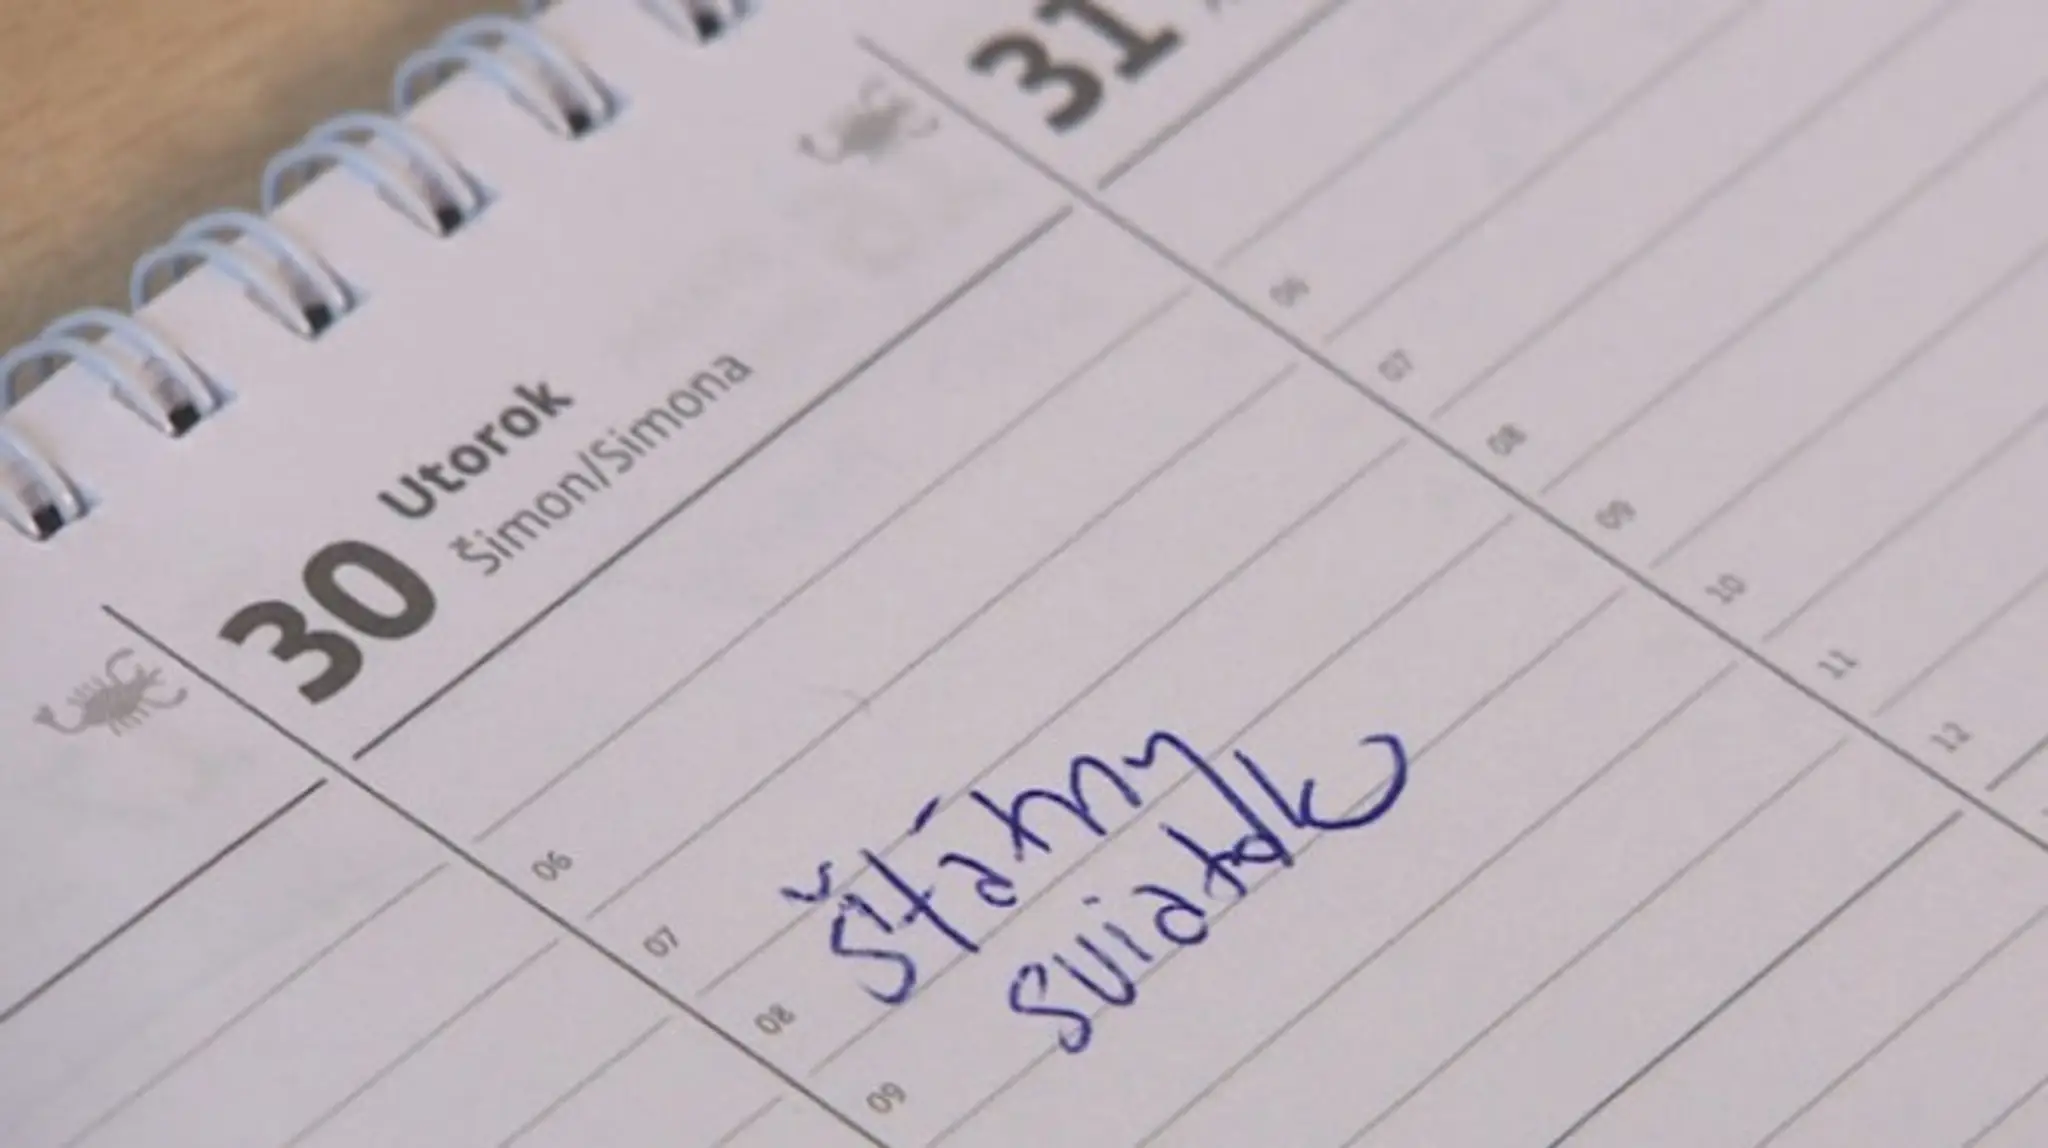 31
30 Utorok
Šimon/Simona
06
07
08
09
Štátny
sviatok
06
07
08
09
10
11
12